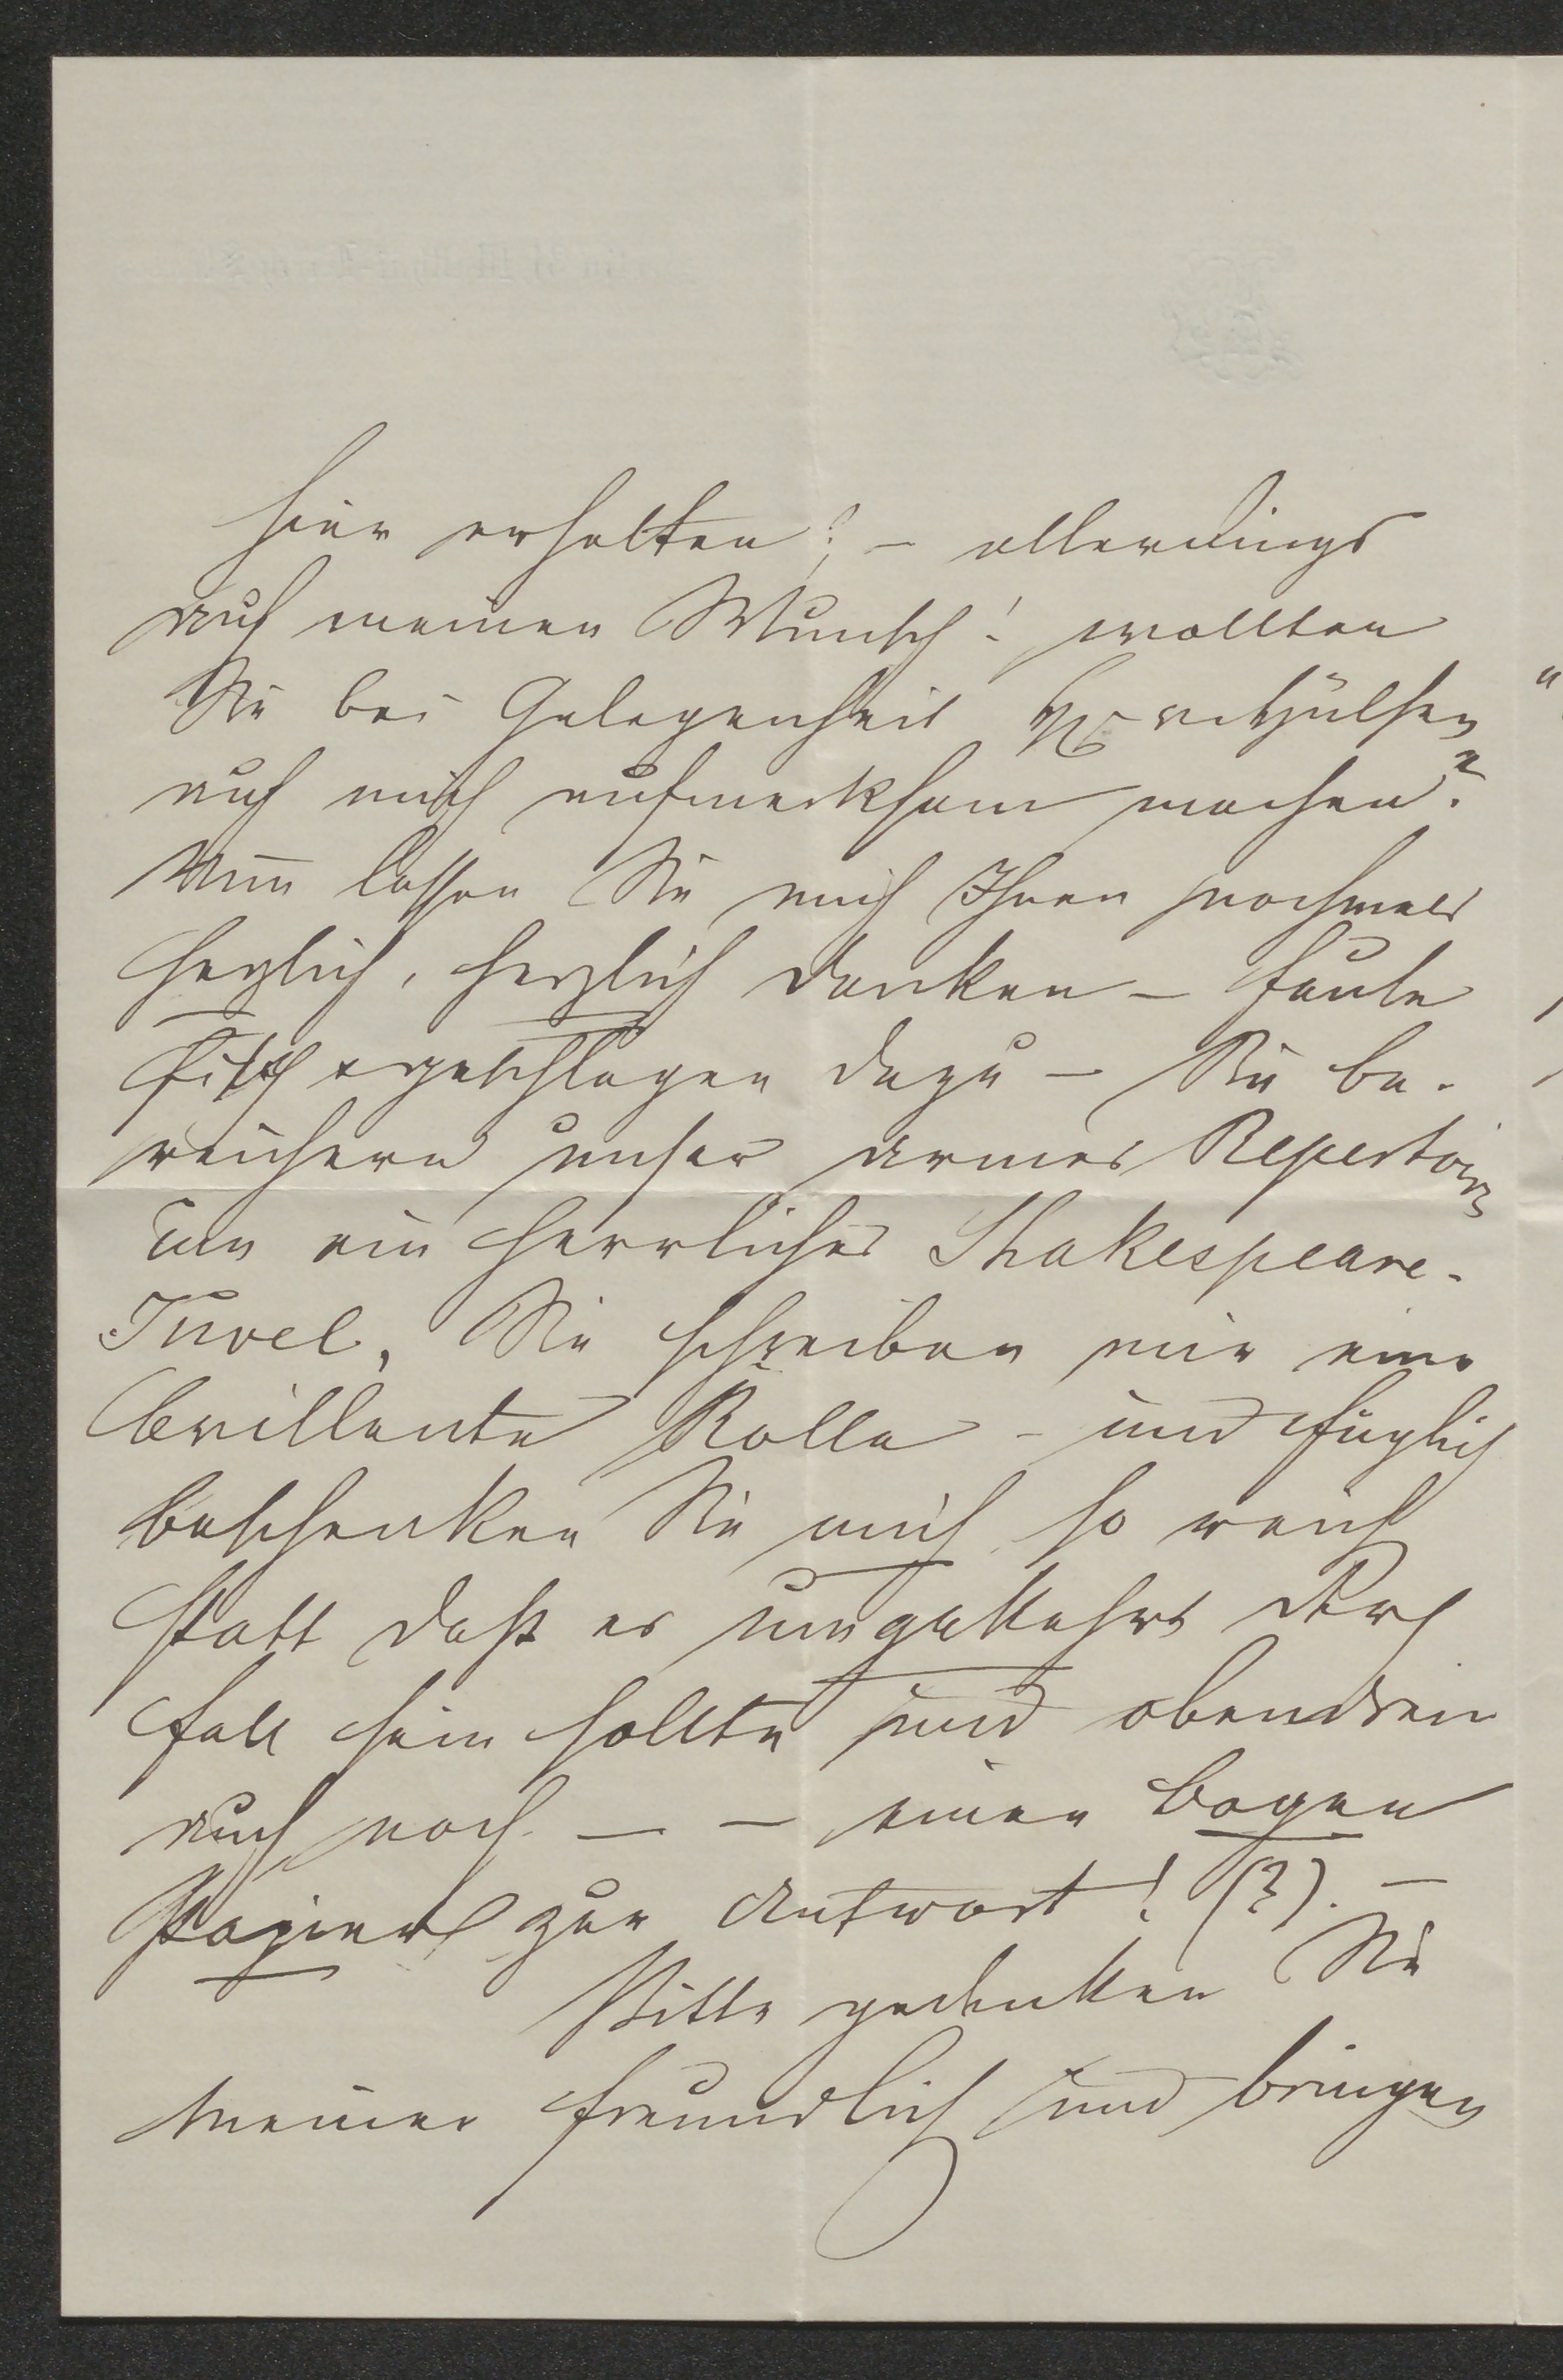 hier erhalten; – allerdings
auf meinen Wunsch! wollten
Sie bei Gelegenheit Hr. v. Hülsen
auf mich aufmerksam machen?
Nun lassen Sie mich Ihnen nochmals
herzlich, herzlich danken –
geschlagen dazu – Sie be-
reichern unser armes Repertoir
um ein herrliches Shakespeare-
Juvel, Sie schreiben mir eine
brillante Rolle – und füglich
beschenken Sie mich so reich
statt daß es umgekehrt der
Fall sein sollte und obendrein
auch noch – – einen Bogen
Papier zur Antwort! (?). –
Bitte gedenken Sie
meiner freundlich und bringen